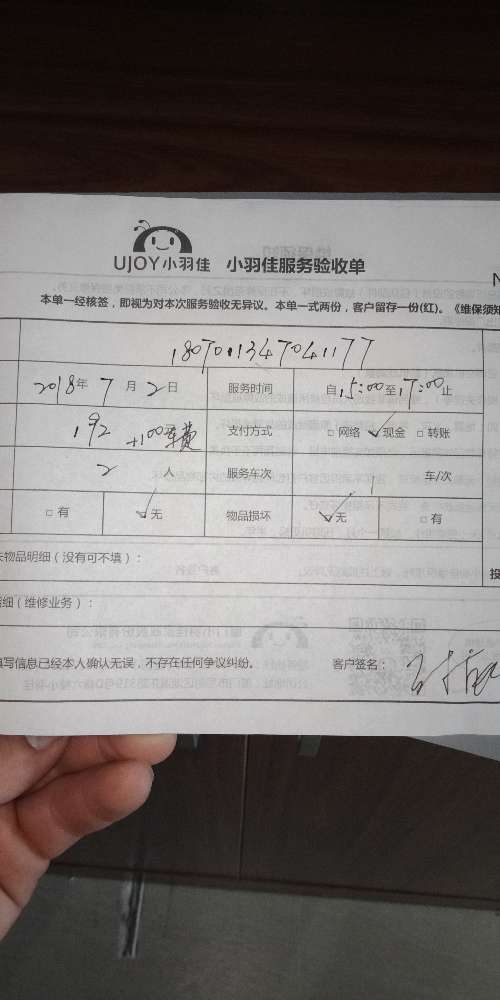 UJOY小羽佳 小羽佳服务验收单
N
本单一经核签，即视为对本次服务验收无异议。本单一式两份，客户留存一份(红)。《维保须知
1807011347041177
2018年 7 月 2 日 服务时间 自 15:00 至 17:00 止
192 +100车费 支付方式 □ 网络 ✓现金 □ 转账
2 人 服务车次 1 车/次
□ 有 ✓无 物品损坏 ✓无 □ 有
物品明细（没有可不填）：
投
细（维修业务）：
填写信息已经本人确认无误，不存在任何争议纠纷。 客户签名：